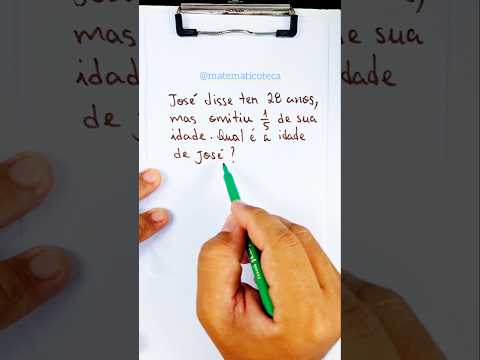 @matematicoteca
José disse ter 28 anos,
mas omitiu 1/5 de sua
idade. Qual é a idade
de José?